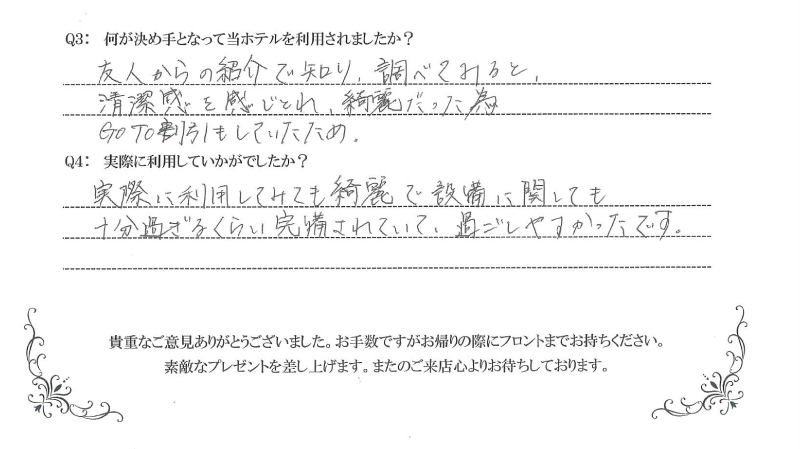 Q3: 何が決め手となって当ホテルを利用されましたか？
友人からの紹介で知り、調べてみると、
清潔感を感じとれ、綺麗だった為
GOTO割引もしていたため。
Q4: 実際に利用していかがでしたか？
実際に利用してみても綺麗で設備に関しても
十分過ぎるくらい完備されていて、過ごしやすかったです。
貴重なご意見ありがとうございました。お手数ですがお帰りの際にフロントまでお持ちください。
素敵なプレゼントを差し上げます。またのご来店心よりお待ちしております。